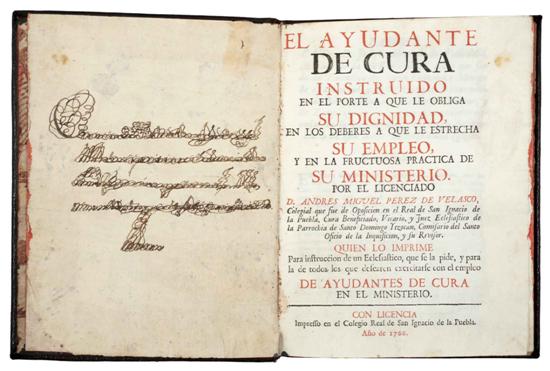 EL AYUDANTE
DE CURA
INSTRUIDO
EN EL PORTE A QUE LE OBLIGA
SU DIGNIDAD,
EN LOS DEBERES A QUE LE ESTRECHA
SU EMPLEO,
Y EN LA FRUCTUOSA PRACTICA DE
SU MINISTERIO.
POR EL LICENCIADO
D. ANDRES MIGUEL PEREZ DE VELASCO,
Colegial que fue de Oposicion en el Real de San Ignacio de
la Puebla, Cura Beneficiado, Vicario, y Juez Eclesiastico de
la Parrochia de Santo Domingo Tezocan, Comisario del Santo
Oficio de la Inquisicion, y su Revisor.
QUIEN LO IMPRIME
Para instruccion de un Eclesiastico, que se la pide, y para
la de todos los que desearen exercitarse con el empleo
DE AYUDANTES DE CURA
EN EL MINISTERIO.
CON LICENCIA
Impresso en el Colegio Real de San Ignacio de la Puebla.
Año de 1766.